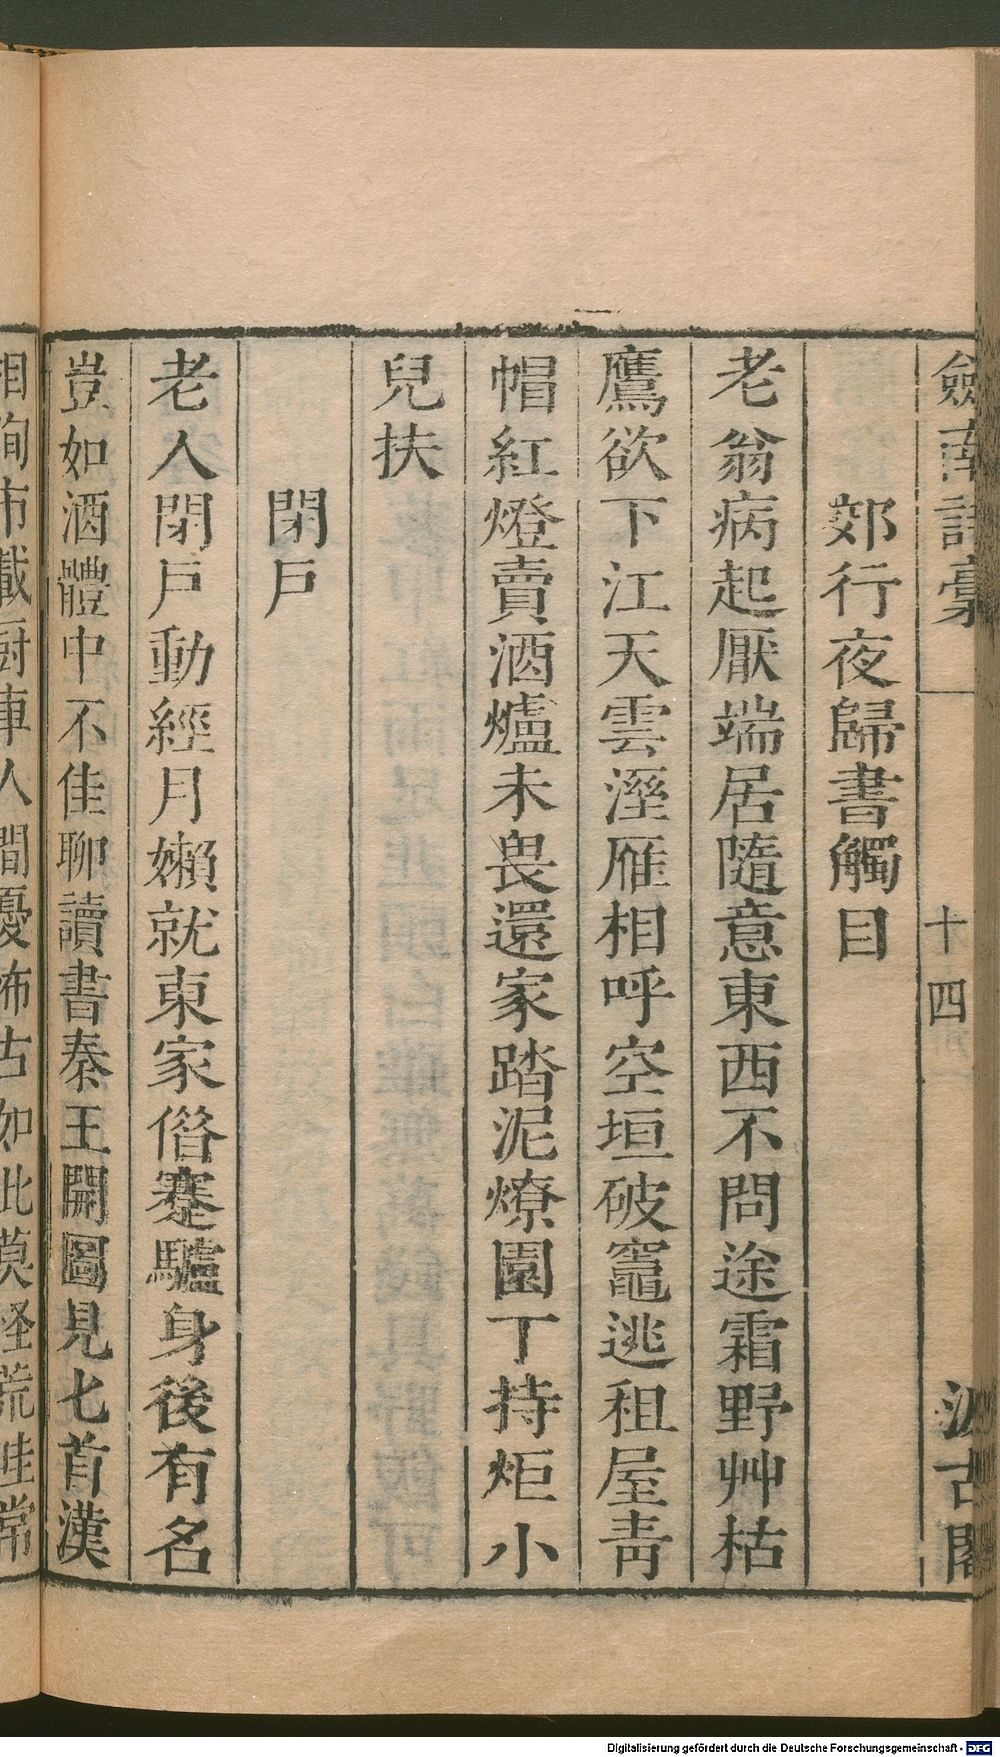 劒南詩稾
十四
汲古閣
郊行夜歸書觸目
老翁病起厭端居隨意東西不問途霜野艸枯
鷹欲下江天雲溼雁相呼空垣破竈逃租屋靑
帽紅燈賣酒爐未畏還家踏泥燎園丁持炬小
兒扶
閉戸
老人閉戸動經月嬾就東家借蹇驢身後有名
豈如酒體中不佳聊讀書秦王開圖見匕首漢
相徇市載厨車人間憂怖古如此莫怪荒畦常
Digitalisierung gefördert durch die Deutsche Forschungsgemeinschaft - DFG